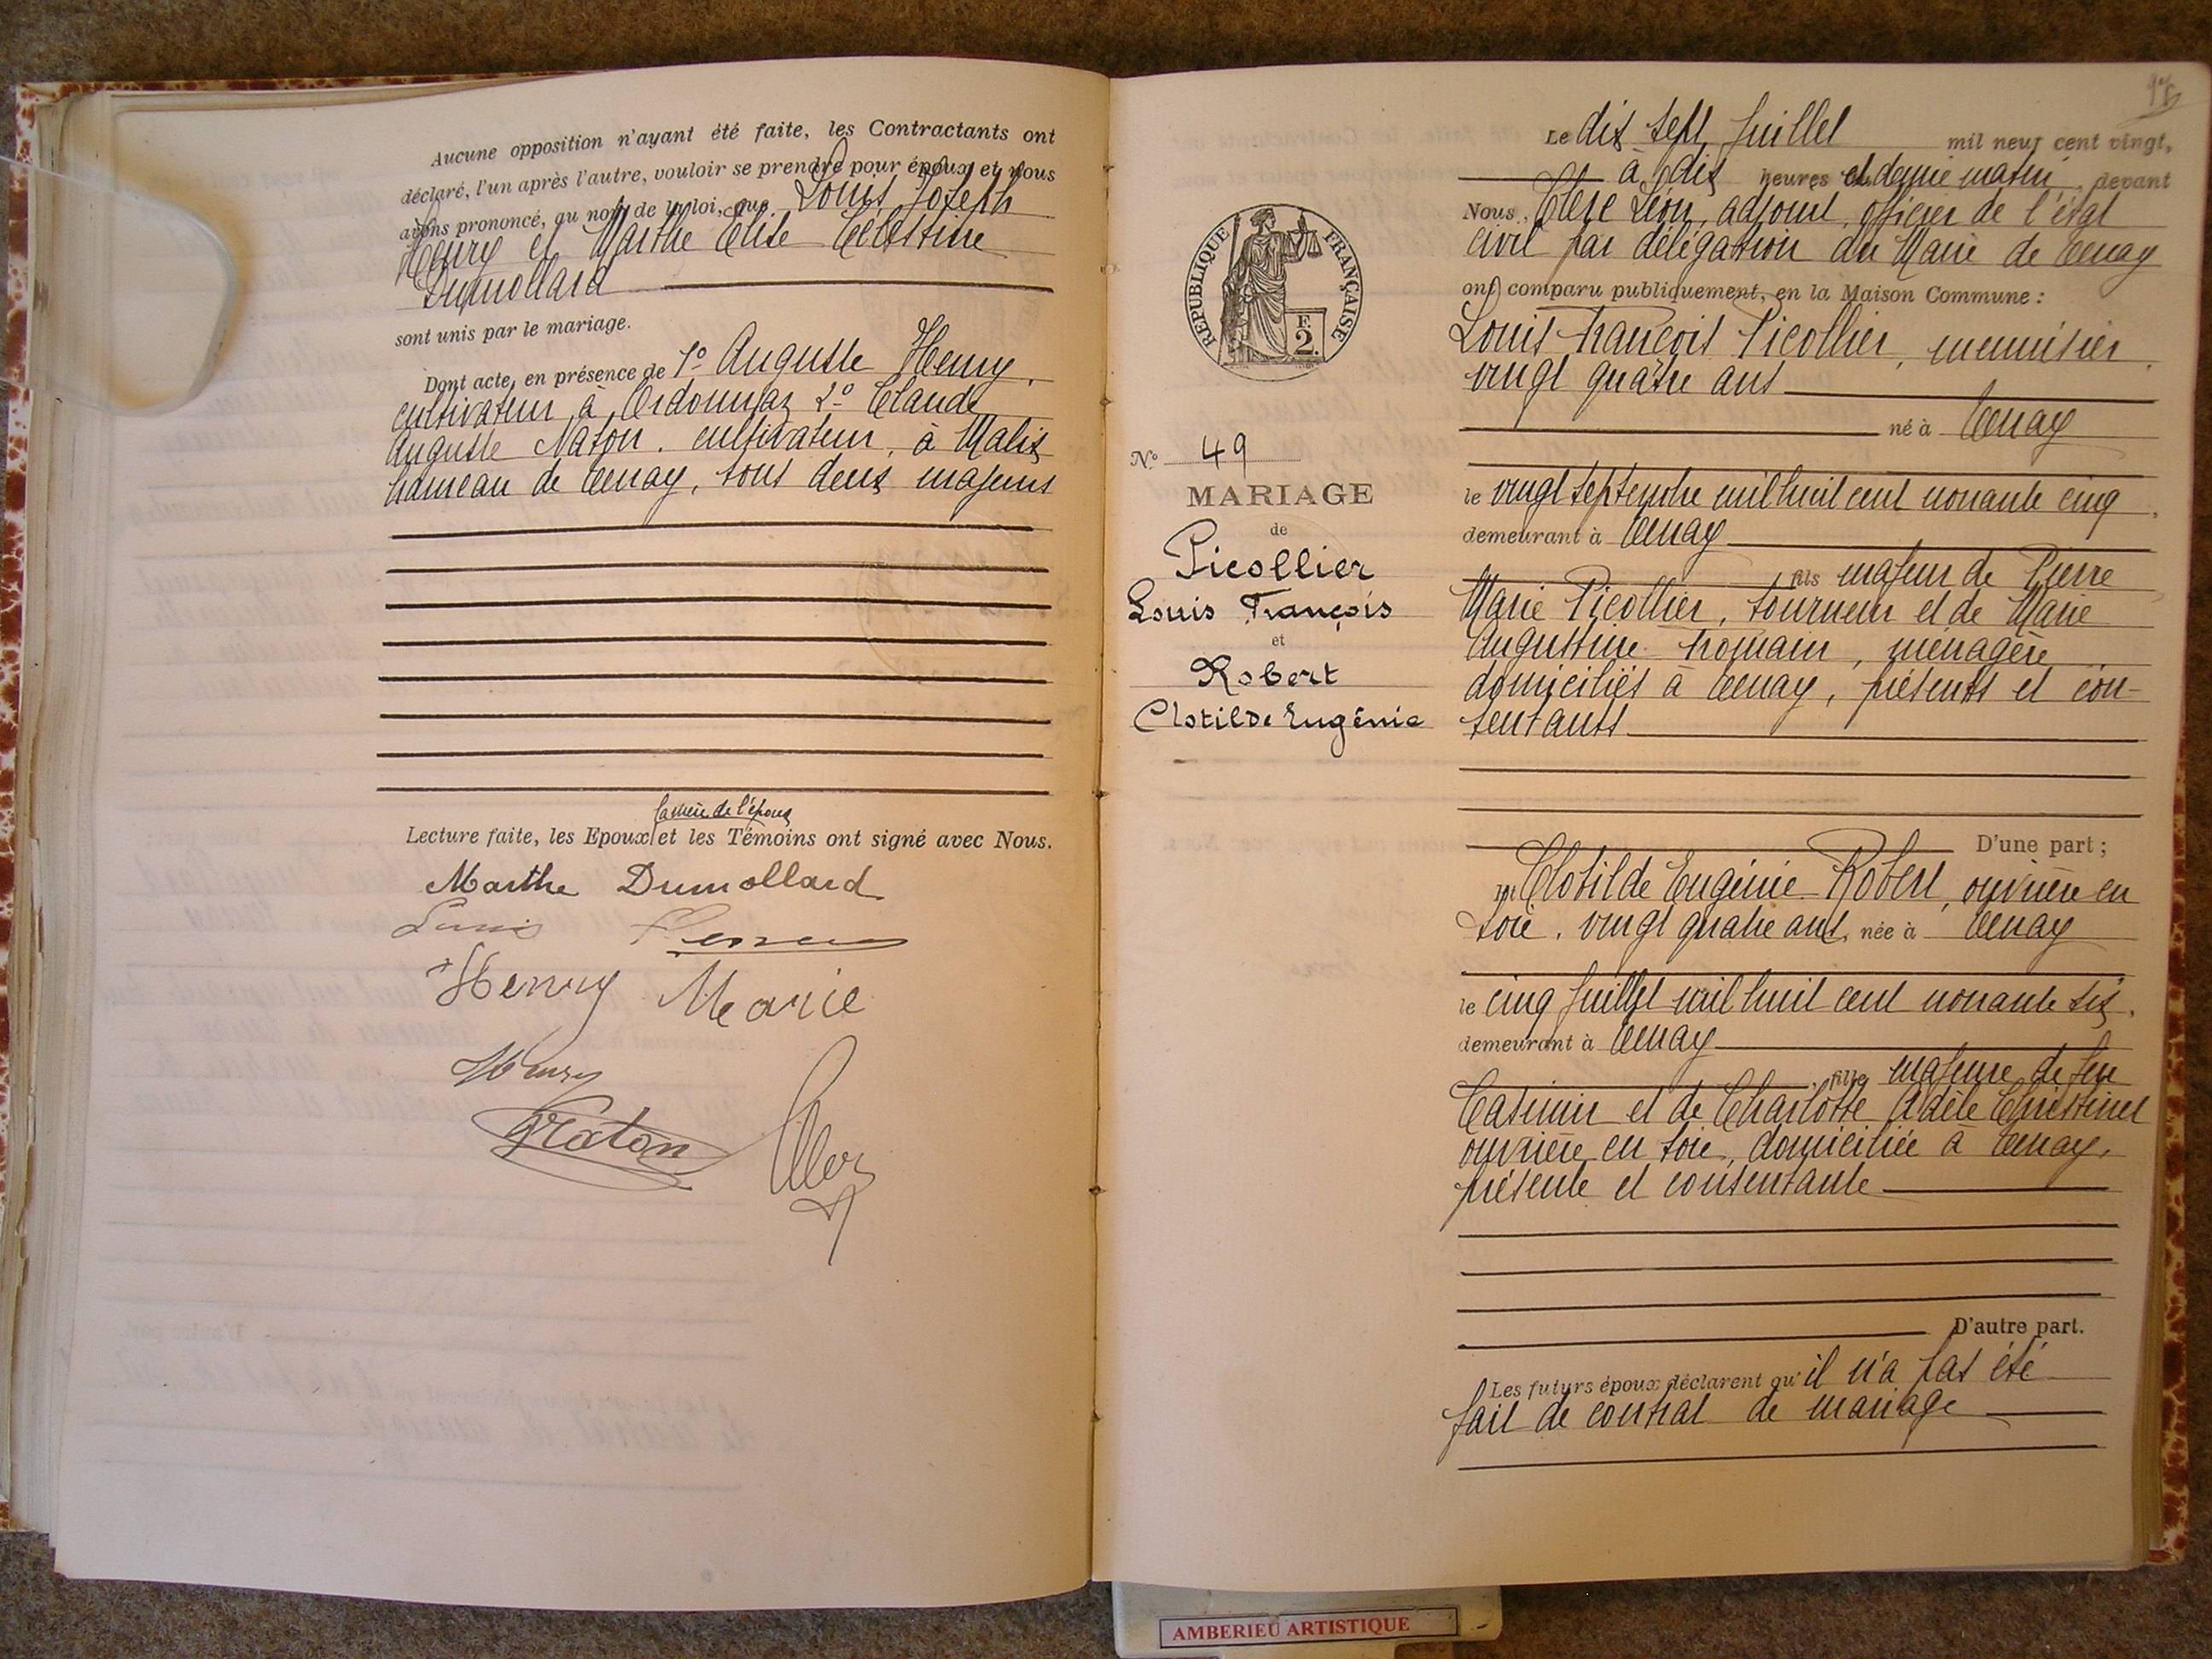 Aucune opposition n'ayant été faite, les Contractants ont
déclaré, l'un après l'autre, vouloir se prendre pour époux et nous
avons prononcé, au nom de la loi, que Louis Joseph
Henry et Marthe Elise Célestine
Dumollard
sont unis par le mariage.
Dont acte, en présence de 1º Auguste Henry,
cultivateur à Ordonnaz 2º Claude
Auguste Naton, cultivateur, à Malix
hameau de Tenay, tous deux majeurs
la mère de l'époux
Lecture faite, les Epoux et les Témoins ont signé avec Nous.
Marthe Dumollard
Louis
Henry Marie
Henry
Naton
REPUBLIQUE FRANÇAISE
F.
2.
Nº 49
MARIAGE
de
Picollier
Louis François
et
Robert
Clotilde Eugénie
Le dix sept Juillet mil neuf cent vingt,
à dix heures et demie matin, devant
Nous, Léon, adjoint, officier de l'état
civil par délégation du Maire de Tenay
ont comparu publiquement, en la Maison Commune :
Louis François Picollier, menuisier,
vingt quatre ans
né à Tenay
le vingt septembre mil huit cent nonante cinq,
demeurant à Tenay
fils majeur de Pierre
Marie Picollier, tourneur et de Marie
Augustine Tromain, ménagère
domiciliés à Tenay, présents et con-
sentants
D'une part ;
et Clotilde Eugénie Robert, ouvrière en
soie, vingt quatre ans, née à Tenay
le cinq Juillet mil huit cent nonante six,
demeurant à Tenay
fille majeure de feu
Casimir et de Charlotte Adèle Christinet
ouvrière en soie, domiciliée à Tenay,
présente et consentante
D'autre part.
Les futurs époux déclarent qu'il n'a pas été
fait de contrat de mariage
AMBERIEU ARTISTIQUE